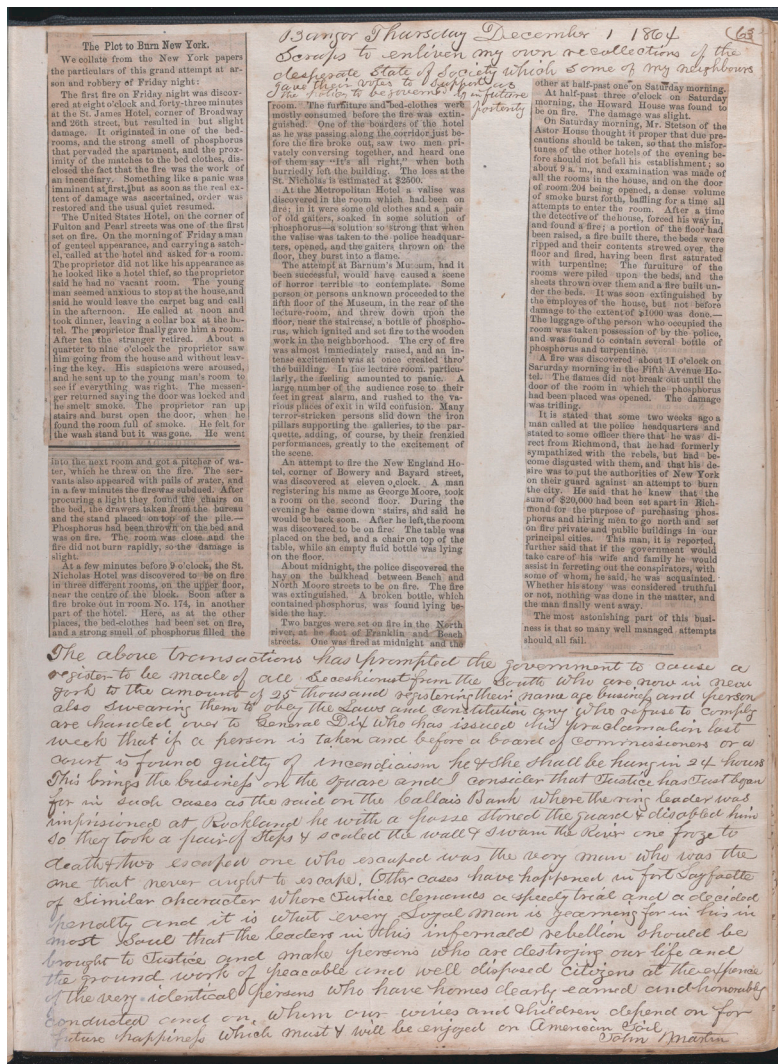 Bangor Thursday December 1 1864 63
Scraps to enliven my own recollections of the
desperate State of Society which some of my neighbours
gave their votes to support as
the Police to be governed by in future
posterity
The Plot to Burn New York.
We collate from the New York papers
the particulars of this grand attempt at ar-
son and robbery of Friday night:
The first fire on Friday night was discov-
ered at eight o'clock and forty-three minutes
at the St. James Hotel, corner of Broadway
and 26th street, but resulted in but slight
damage. It originated in one of the bed-
rooms, and the strong smell of phosphorus
that pervaded the apartment, and the prox-
imity of the matches to the bed clothes, dis-
closed the fact that the fire was the work of
an incendiary. Something like a panic was
imminent at first, but as soon as the real ex-
tent of damage was ascertained, order was
restored and the usual quiet resumed.
The United States Hotel, on the corner of
Fulton and Pearl streets was one of the first
set on fire. On the morning of Friday a man
of genteel appearance, and carrying a satch-
el, called at the hotel and asked for a room.
The proprietor did not like his appearance as
he looked like a hotel thief, so the proprietor
said he had no vacant room. The young
man seemed anxious to stop at the house, and
said he would leave the carpet bag and call
in the afternoon. He called at noon and
took dinner, leaving a collar box at the ho-
tel. The proprietor finally gave him a room.
After tea the stranger retired. About a
quarter to nine o'clock the proprietor saw
him going from the house and without leav-
ing the key. His suspicions were aroused,
and he sent up to the young man's room to
see if everything was right. The messen-
ger returned saying the door was locked and
he smelt smoke. The proprietor ran up
stairs and burst open the door, when he
found the room full of smoke. He felt for
the wash stand but it was gone. He went
into the next room and got a pitcher of wa-
ter, which he threw on the fire. The ser-
vants also appeared with pails of water, and
in a few minutes the fire was subdued. After
procuring a light they found the chairs on
the bed, the drawers taken from the bureau
and the stand placed on top of the pile.—
Phosphorus had been thrown on the bed and
was on fire. The room was close and the
fire did not burn rapidly, so the damage is
slight.
At a few minutes before 9 o'clock, the St.
Nicholas Hotel was discovered to be on fire
in three different rooms, on the upper floor,
near the centre of the block. Soon after a
fire broke out in room No. 174, in another
part of the hotel. Here, as at the other
places, the bed-clothes had been set on fire,
and a strong smell of phosphorus filled the
room. The furniture and bed-clothes were
mostly consumed before the fire was extin-
guished. One of the boarders of the hotel
as he was passing along the corridor just be-
fore the fire broke out, saw two men pri-
vately conversing together, and heard one
of them say "It's all right," when both
hurriedly left the building. The loss at the
St. Nicholas is estimated at $2500.
At the Metropolitan Hotel a valise was
discovered in the room which had been on
fire; in it were some old clothes and a pair
of old gaiters, soaked in some solution of
phosphorus—a solution so strong that when
the valise was taken to the police headquar-
ters, opened, and the gaiters thrown on the
floor, they burst into a flame.
The attempt at Barnum's Museum, had it
been successful, would have caused a scene
of horror terrible to contemplate. Some
person or persons unknown proceeded to the
fifth floor of the Museum, in the rear of the
lecture-room, and threw down upon the
floor, near the staircase, a bottle of phospho-
rus, which ignited and set fire to the wooden
work in the neighborhood. The cry of fire
was almost immediately raised, and an in-
tense excitement was at once created thro'
the building. In the lecture room, particu-
larly, the feeling amounted to panic. A
large number of the audience rose to their
feet in great alarm, and rushed to the va-
rious places of exit in wild confusion. Many
terror-stricken persons slid down the iron
pillars supporting the galleries, to the par-
quette, adding, of course, by their frenzied
performances, greatly to the excitement of
the scene.
An attempt to fire the New England Ho-
tel, corner of Bowery and Bayard street,
was discovered at eleven o'clock. A man
registering his name as George Moore, took
a room on the second floor. During the
evening he came down stairs, and said he
would be back soon. After he left, the room
was discovered to be on fire. The table was
placed on the bed, and a chair on top of the
table, while an empty fluid bottle was lying
on the floor.
About midnight, the police discovered the
hay on the bulkhead between Beach and
North Moore streets to be on fire. The fire
was extinguished. A broken bottle, which
contained phosphorus, was found lying be-
side the hay.
Two barges were set on fire in the North
river, at the foot of Franklin and Beach
streets. One was fired at midnight and the
other at half-past one on Saturday morning.
At half-past three o'clock on Saturday
morning, the Howard House was found to
be on fire. The damage was slight.
On Saturday morning, Mr. Stetson of the
Astor House thought it proper that due pre-
cautions should be taken, so that the misfor-
tunes of the other hotels of the evening be-
fore should not befall his establishment; so
about 9 a. m., and examination was made of
all the rooms in the house, and on the door
of room 204 being opened, a dense volume
of smoke burst forth, baffling for a time all
attempts to enter the room. After a time
the detective of the house, forced his way in,
and found a fire; a portion of the floor had
been raised, a fire built there, the beds were
ripped and their contents strewed over the
floor and fired, having been first saturated
with turpentine. The furuiture of the
rooms were piled upon the beds, and the
sheets thrown over them and a fire built un-
der the beds. It was soon extinguished by
the employes of the house, but not before
damage to the extent of $1000 was done.—
The luggage of the person who occupied the
room was taken possession of by the police,
and was found to contain several bottle of
phosphorus and turpentine.
A fire was discovered about 11 o'clock on
Saturday morning in the Fifth Avenue Ho-
tel. The flames did not break out until the
door of the room in which the phosphorus
had been placed was opened. The damage
was trifling.
It is stated that some two weeks ago a
man called at the police headquarters and
stated to some officer there that he was di-
rect from Richmond, that he had formerly
sympathized with the rebels, but had be-
come disgusted with them, and that his de-
sire was to put the authorities of New York
on their guard against an attempt to burn
the city. He said that he knew that the
sum of $20,000 had been set apart in Rich-
mond for the purpose of purchasing phos-
phorus and hiring men to go north and set
on fire private and public buildings in our
principal cities. This man, it is reported,
further said that if the government would
take care of his wife and family he would
assist in ferreting out the conspirators, with
some of whom, he said, he was acquainted.
Whether his story was considered truthful
or not, nothing was done in the matter, and
the man finally went away.
The most astonishing part of this busi-
ness is that so many well managed attempts
should all fail.
The above transactions has prompted the government to cause a
register to be made of all Seceshionist from the South who are now in new
york to the amount of 25 thousand registering their name age business and person
also swearing them to obey the Laws and constitution any who refuse to comply
are handed over to General Dix who has issued his proclamation last
week that if a person is taken and before a board of commissioners or a
court is found guilty of incendiaism he & she shall be hung in 24 hours
This brings the business on the square and I consider that Justice has Just began
for in such cases as the raid on the Callais Bank where the ring leader was
imprisioned at Rockland he with a posse stoned the guard & disabled him
so they took a pair of Steps & scaled the wall & swam the River one froze to
death & two escaped one who escaped was the very man who was the
one that never aught to escape. Other cases have happened in fort Layfaette
of Similar character where Justice demands a speedy trial and a decided
penalty and it is what every Loyal Man is yearning for in his in
most Soul that the leaders in this infernald rebellion should be
brought to Justice and make persons who are destroying our life and
the ground work of peacable and well disposed Citizens at the expence
of the very identical persons who have homes dearly earned and honorably
conducted and on whom our wives and children depend on for
future happiness which must & will be enjoyed on American Soil
John Martin